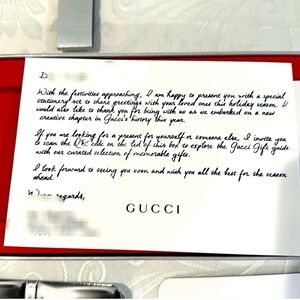 D
With the festivities approaching, I am happy to present you with a special
stationery set to share greetings with your loved ones this holiday season. I
would also like to thank you for being with us as we embarked on a new
creative chapter in Gucci's history this year.
If you are looking for a present for yourself or someone else, I invite you
to scan the QR code on the lid of this box to explore the Gucci Gift guide
with our curated selection of memorable gifts.
I look forward to seeing you soon and wish you all the best for the season
ahead.
Warm regards,
GUCCI